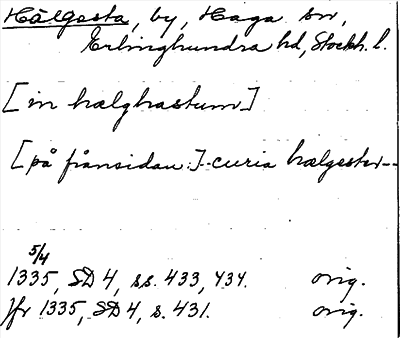 Hälgesta, by, Haga sn,
Erlinghundra hd, Stockh. l.
[in hælghastum]
[på frånsidan:] -curia hælgester--
5/4
1335, SD 4, ss. 433, 434. orig.
Jfr 1335, SD 4, s. 431. orig.